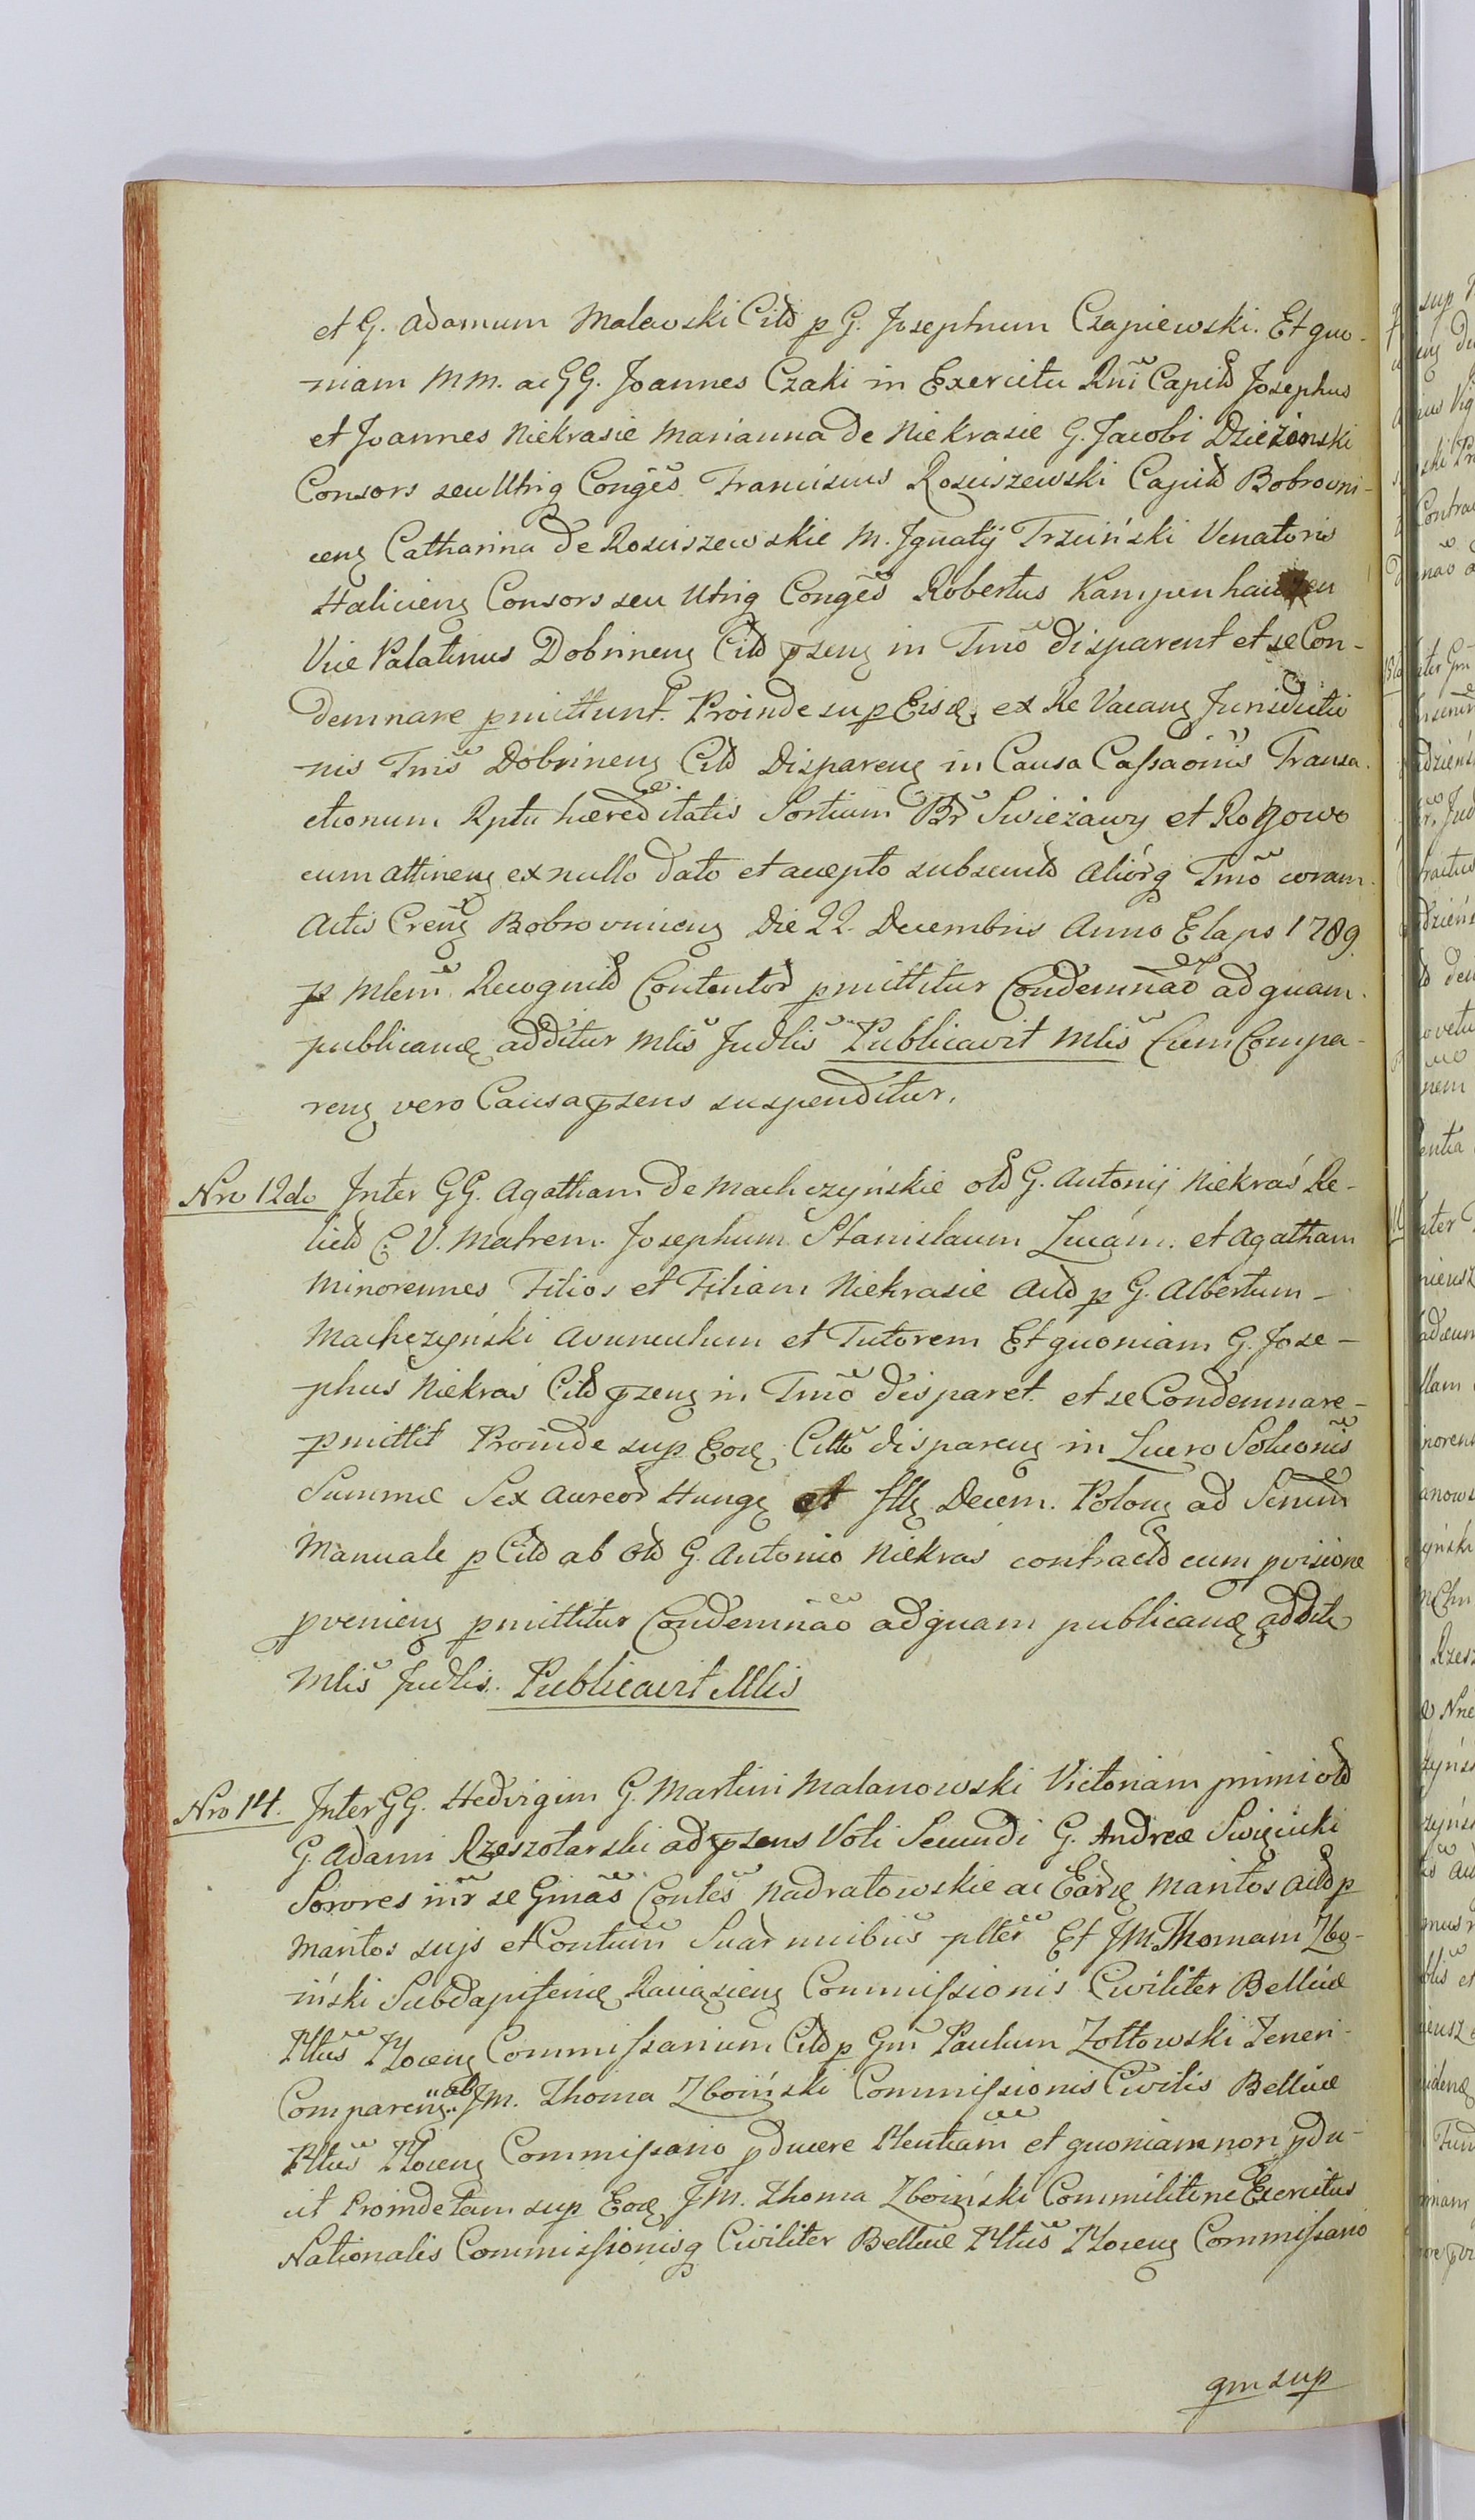 et G. Adamum Malewski Citd p G. Josephum Czapiewski. Et quo-
niam MM. ac GG. Joannes Czaki in Exercitu Rni Capitd Josephus
et Joannes Niekrasie Marianna de Niekrasie G. Jacobi Dzieżinski
Consors seu Utriq Conges Franciscus Rosciszewski Capitd Bobrowni-
cens Catharina de Rosciszewskie M. Ignatij Trzciński Venatoris
Haliciens Consors seu Utriq Conges Robertus Kampenhauzen
Vice Palatinus Dobrinens Citd psens in Tmo disparent et se Con-
demnare pmittunt. Proinde sup Eisd ex Re Vacans Jurisdictio
nis Tmis Dobrinens Citd Disparens in Causa Cassaonis Transa
ctionum Rptu hæreditatis Sortium Br Swieżawy et Rogowo
cum attinens ex nullo dato et accepto subsecutd aliorq Tmo coram
Actis Crens Bobrowniens Die 22. Decembris Anno Elaps 1789.
p Mlem Recognitd Contentor pmittitur Condemnao ad quam
publicand additur Mlis Judlis Publicavit Mlis Cum Compa-
rens vero Causa psens suspenditur.
Nro 12do Inter GG. Agatham de Machczyńskie old G. Antonij Niekraś Re-
lictd C. V. Matrem Josephum Stanislaum Lucam et Agatham
Minorennes Filios et Filiam Niekrasie Actd p G. Albertum
Machczyński Avunculum et Tutorem Et quoniam G. Jose-
phus Niekraś Citd psens in Tmo disparet et se Condemnare
pmittit Proinde sup Eod Citto disparens in Lucro Soluonis
Summæ Sex Aureor Hung et flls Decem Polons ad
Manuale p Citd ab old G. Antonio Niekras contractd cum pvisione
pveniens pmittitur Condemnao ad quam publicand addit
Mlis Judlis. Publicavit Mlis
Nro 14. Inter GG. Hedvigim G. Martini Malanowski Victoriam primi old
G. Adami Rzeszotarski ad psens Voti Secundi G. Andreæ Swięcicki
Sorores intr se Gmas Contes Nadratowskie ac Eard Maritos Actd p
Maritos sujs et Contum Suar nuibus plter Et JM. Thomam Zbo-
iński Subdapiferid Raciąziens Commissionis Civiliter Bellicæ
Pltus Plocens Commissarium Citd p Gm Paulum Zołtowski Teneri
Comparens ab JM. Thoma Zboiński Commissionis Civilis Bellicæ
Pltus Plocens Commissario pducere Plentiam et quoniam non pdu-
cit Proinde tam sup Eod JM. Thoma Zboiński Commilitone Exercitus
Nationalis Commissionisq Civiliter Bellicæ Pltus Plocens Commissario
qm sup